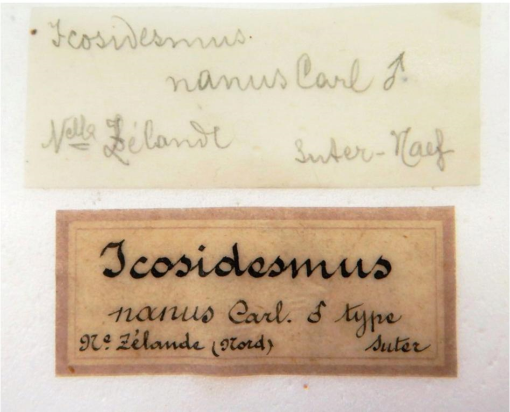 Icosidesmus.
nanus Carl ♂.
Nelle Zélande
Suter-Naef
Icosidesmus
nanus Carl. ♂ type
Ne Zélande (Nord) Suter